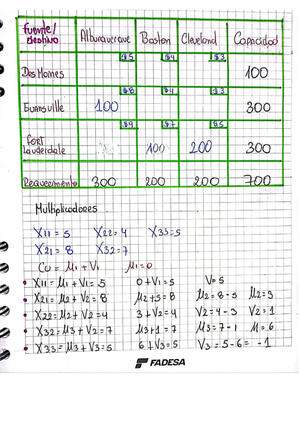 Fuente/ destino Alburquerque Boston Cleveland Capacidad
$5 $4 $3
Des Moines 100
$8 $4 $3
Evansville 100 300
$9 $7 $5
Fort Lauderdale 100 200 300
Requerimiento 300 200 200 700
Multiplicadores
X11 = 5 X22 = 4 X33 = 5
X21 = 8 X32 = 7
Cu = M1 + V1 M1 = 0
• X11 = M1 + V1 = 5 0 + V1 = 5 V = 5
• X21 = M2 + V2 = 8 M2 + 5 = 8 M2 = 8 - 5 M2 = 3
• X22 = M2 + V2 = 4 3 + V2 = 4 V2 = 4 - 3 V2 = 1
• X32 = M3 + V2 = 7 M3 + 1 = 7 M3 = 7 - 1 M = 6
• X33 = M3 + V3 = 5 6 + V3 = 5 V3 = 5 - 6 = -1
FADESA